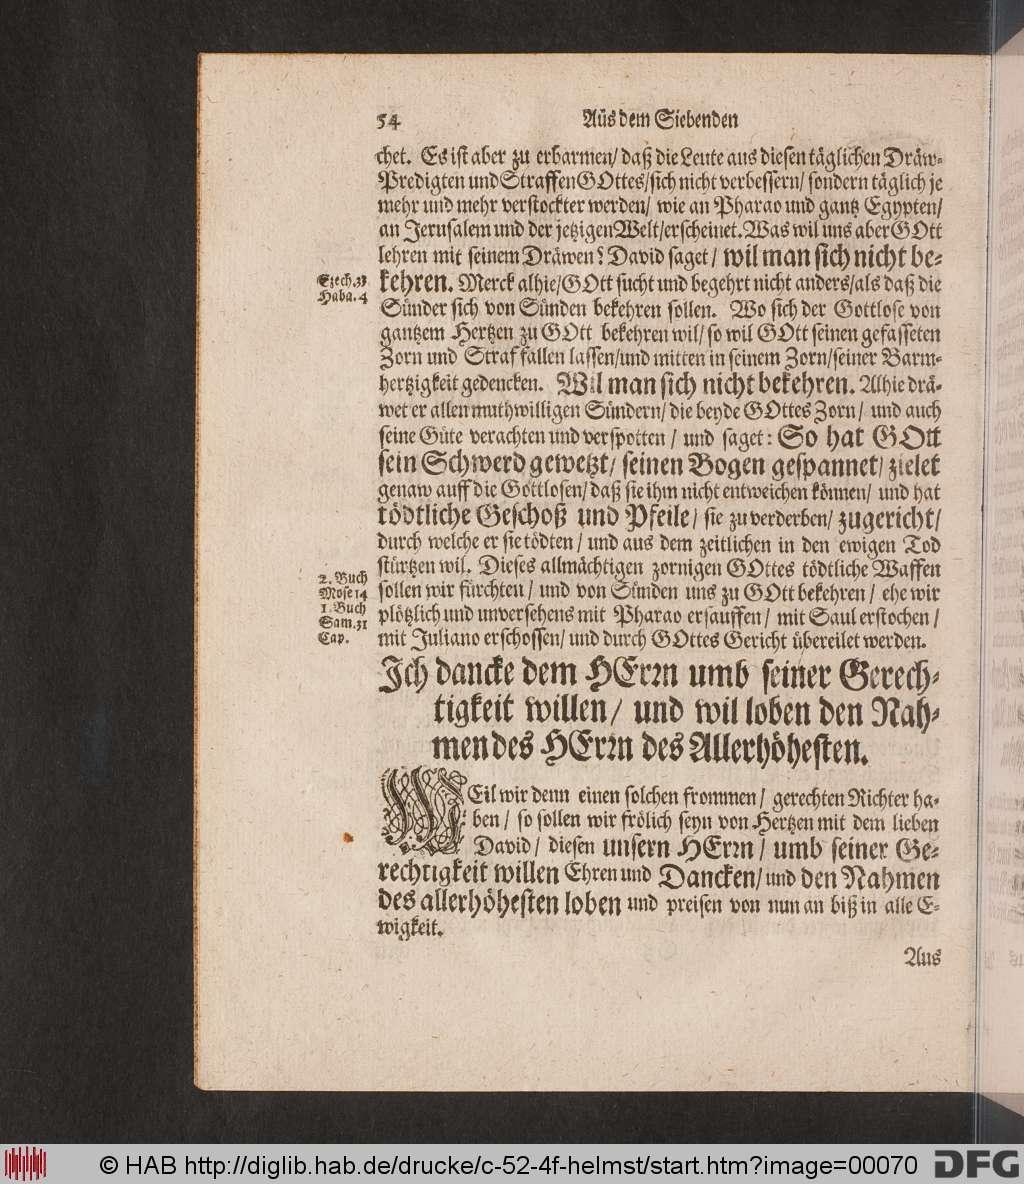 54 Aus dem Siebenden
chet. Es ist aber zu erbarmen/ daß die Leute aus diesen täglichen Dräw-
Predigten und Straffen GOttes/ sich nicht verbessern/ sondern täglich je
mehr und mehr verstockter werden/ wie an Pharao und gantz Egypten/
an Jerusalem und der jetzigen Welt/ erscheinet. Was wil uns aber GOtt
lehren mit seinem Dräwen? David saget/ wil man sich nicht be-
Ezech. 33
Haba. 4
kehren. Merck alhie/ GOtt sucht und begehrt nicht anders/ als daß die
Sünder sich von Sünden bekehren sollen. Wo sich der Gottlose von
gantzem Hertzen zu GOtt bekehren wil/ so wil GOtt seinen gefasseten
Zorn und Straf fallen lassen/ und mitten in seinem Zorn/ seiner Barm-
hertzigkeit gedencken. Wil man sich nicht bekehren. Alhie drä-
wet er allen muthwilligen Sündern/ die beyde GOttes Zorn/ und auch
seine Güte verachten und verspotten/ und saget: So hat GOtt
sein Schwerd gewetzt/ seinen Bogen gespannet/ zielet
genaw auff die Gottlosen/ daß sie ihm nicht entweichen können/ und hat
tödtliche Geschoß und Pfeile/ sie zu verderben/ zugericht/
durch welche er sie tödten/ und aus dem zeitlichen in den ewigen Tod
stürtzen wil. Dieses allmächtigen zornigen GOttes tödtliche Waffen
2. Buch
Mose 14
1. Buch
Sam. 31
Cap.
sollen wir fürchten/ und von Sünden uns zu GOtt bekehren/ ehe wir
plötzlich und unversehens mit Pharao ersauffen/ mit Saul erstochen/
mit Juliano erschossen/ und durch GOttes Gericht übereilet werden.
Ich dancke dem HErrn umb seiner Gerech-
tigkeit willen/ und wil loben den Nah-
men des HErrn des Allerhöhesten.
WEil wir denn einen solchen frommen/ gerechten Richter ha-
ben/ so sollen wir frölich seyn von Hertzen mit dem lieben
David/ diesen unsern HErrn/ umb seiner Ge-
rechtigkeit willen Ehren und Dancken/ und den Nahmen
des allerhöhesten loben und preisen von nun an biß in alle E-
wigkeit.
Aus
© HAB http://diglib.hab.de/drucke/c-52-4f-helmst/start.htm?image=00070 DFG